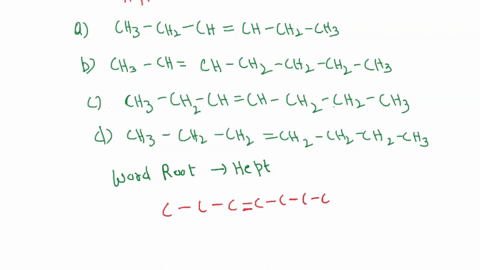 a) CH3-CH2-CH=CH-CH2-CH3
b) CH3-CH=CH-CH2-CH2-CH2-CH3
c) CH3-CH2-CH=CH-CH2-CH2-CH3
d) CH3-CH2-CH2=CH2-CH2-CH2-CH3
Word Root → Hept
C-C-C=C-C-C-C